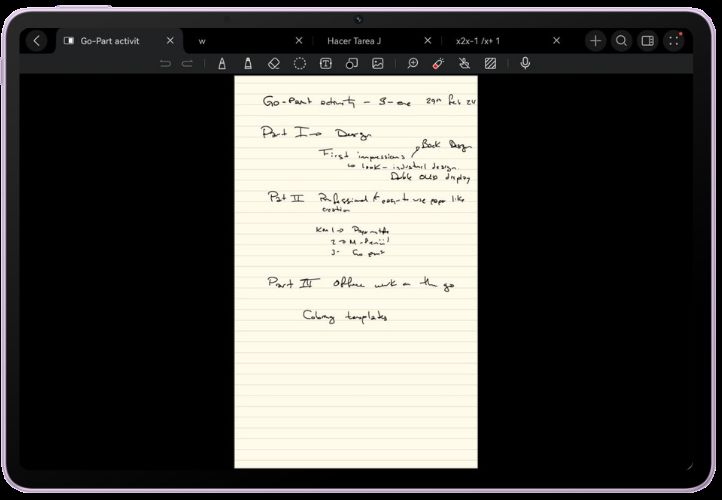 Go-Part activit
w
Hacer Tarea J
x2x-1 /x+ 1
Go-Part activity - 29th Feb 24
Part I → Design
Back Design
First impressions
↳ look - industrial design
Double OLED display
Part II Professional & easy to use paper like
creation
1 → Papermatte
2 → M-Pencil
3-
Part III Office work on the go
Coloring templates